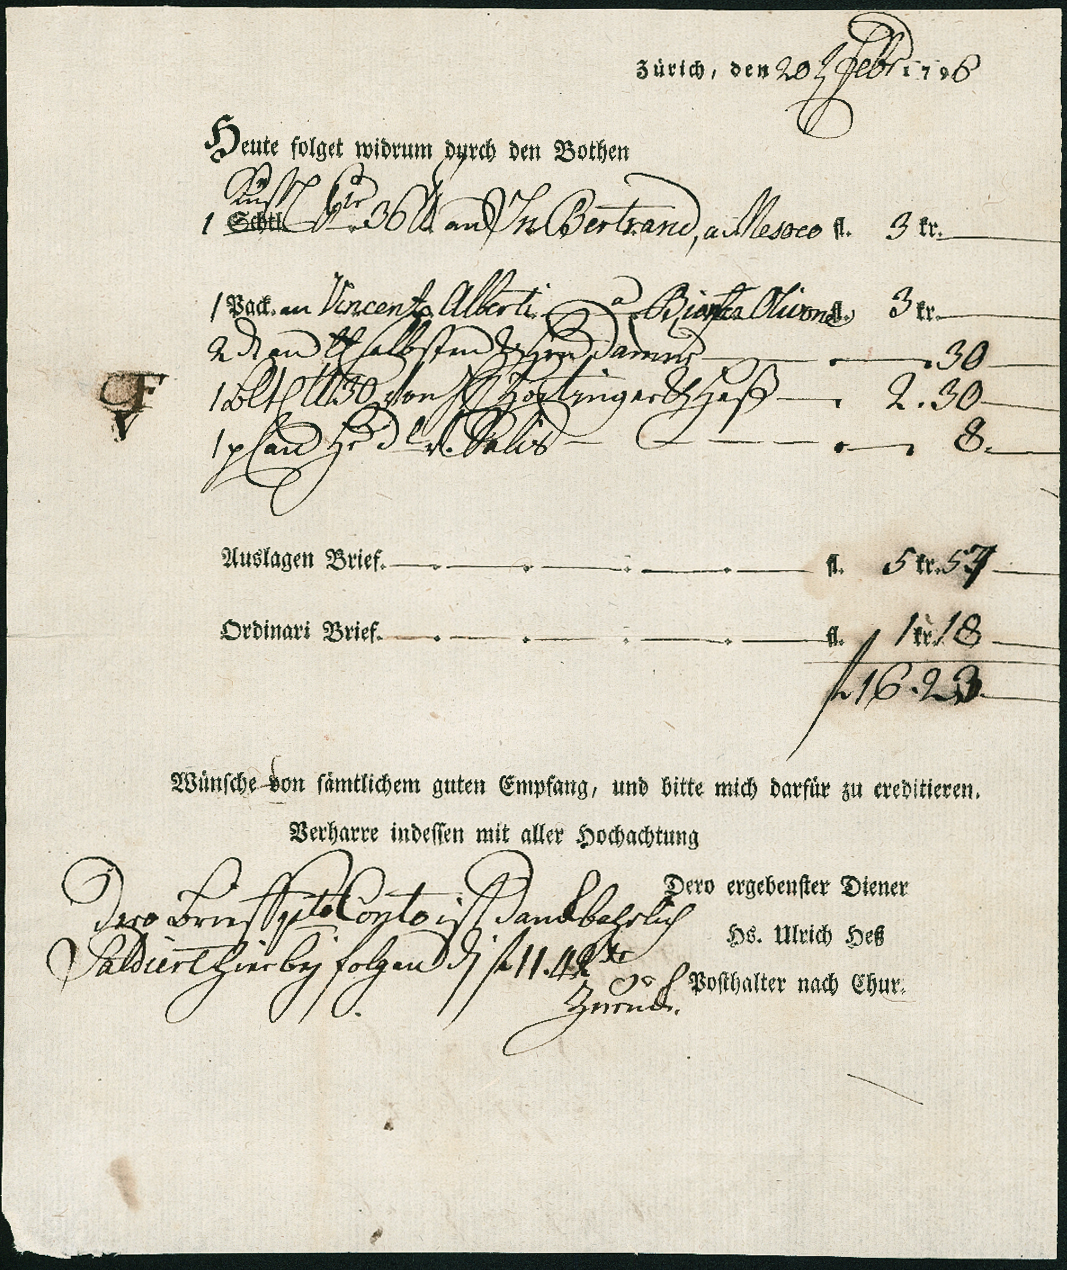 Zürich, den 20 Febr 1796
Heute folget widrum durch den Bothen
1 Schtl. 36 an Bertrand, a Mesoco fl. 3 kr.
1 Pack. an Vincenti Alberti a Olivone fl. 3 kr.
2 30
1 30 von & Heß 2.30
1 v. Salis 8.
CF
Auslagen Brief. fl. 5 kr. 57
Ordinari Brief. fl. 1 kr. 18
fl 16.23.
Wünsche von sämtlichem guten Empfang, und bitte mich darfür zu creditieren.
Verharre indessen mit aller Hochachtung
Dero ergebenster Diener
Hs. Ulrich Heß
Posthalter nach Chur.
Dero Conto ist dankbahrlich
Saldiert hierbey folgend fl 11.42
Zurück.